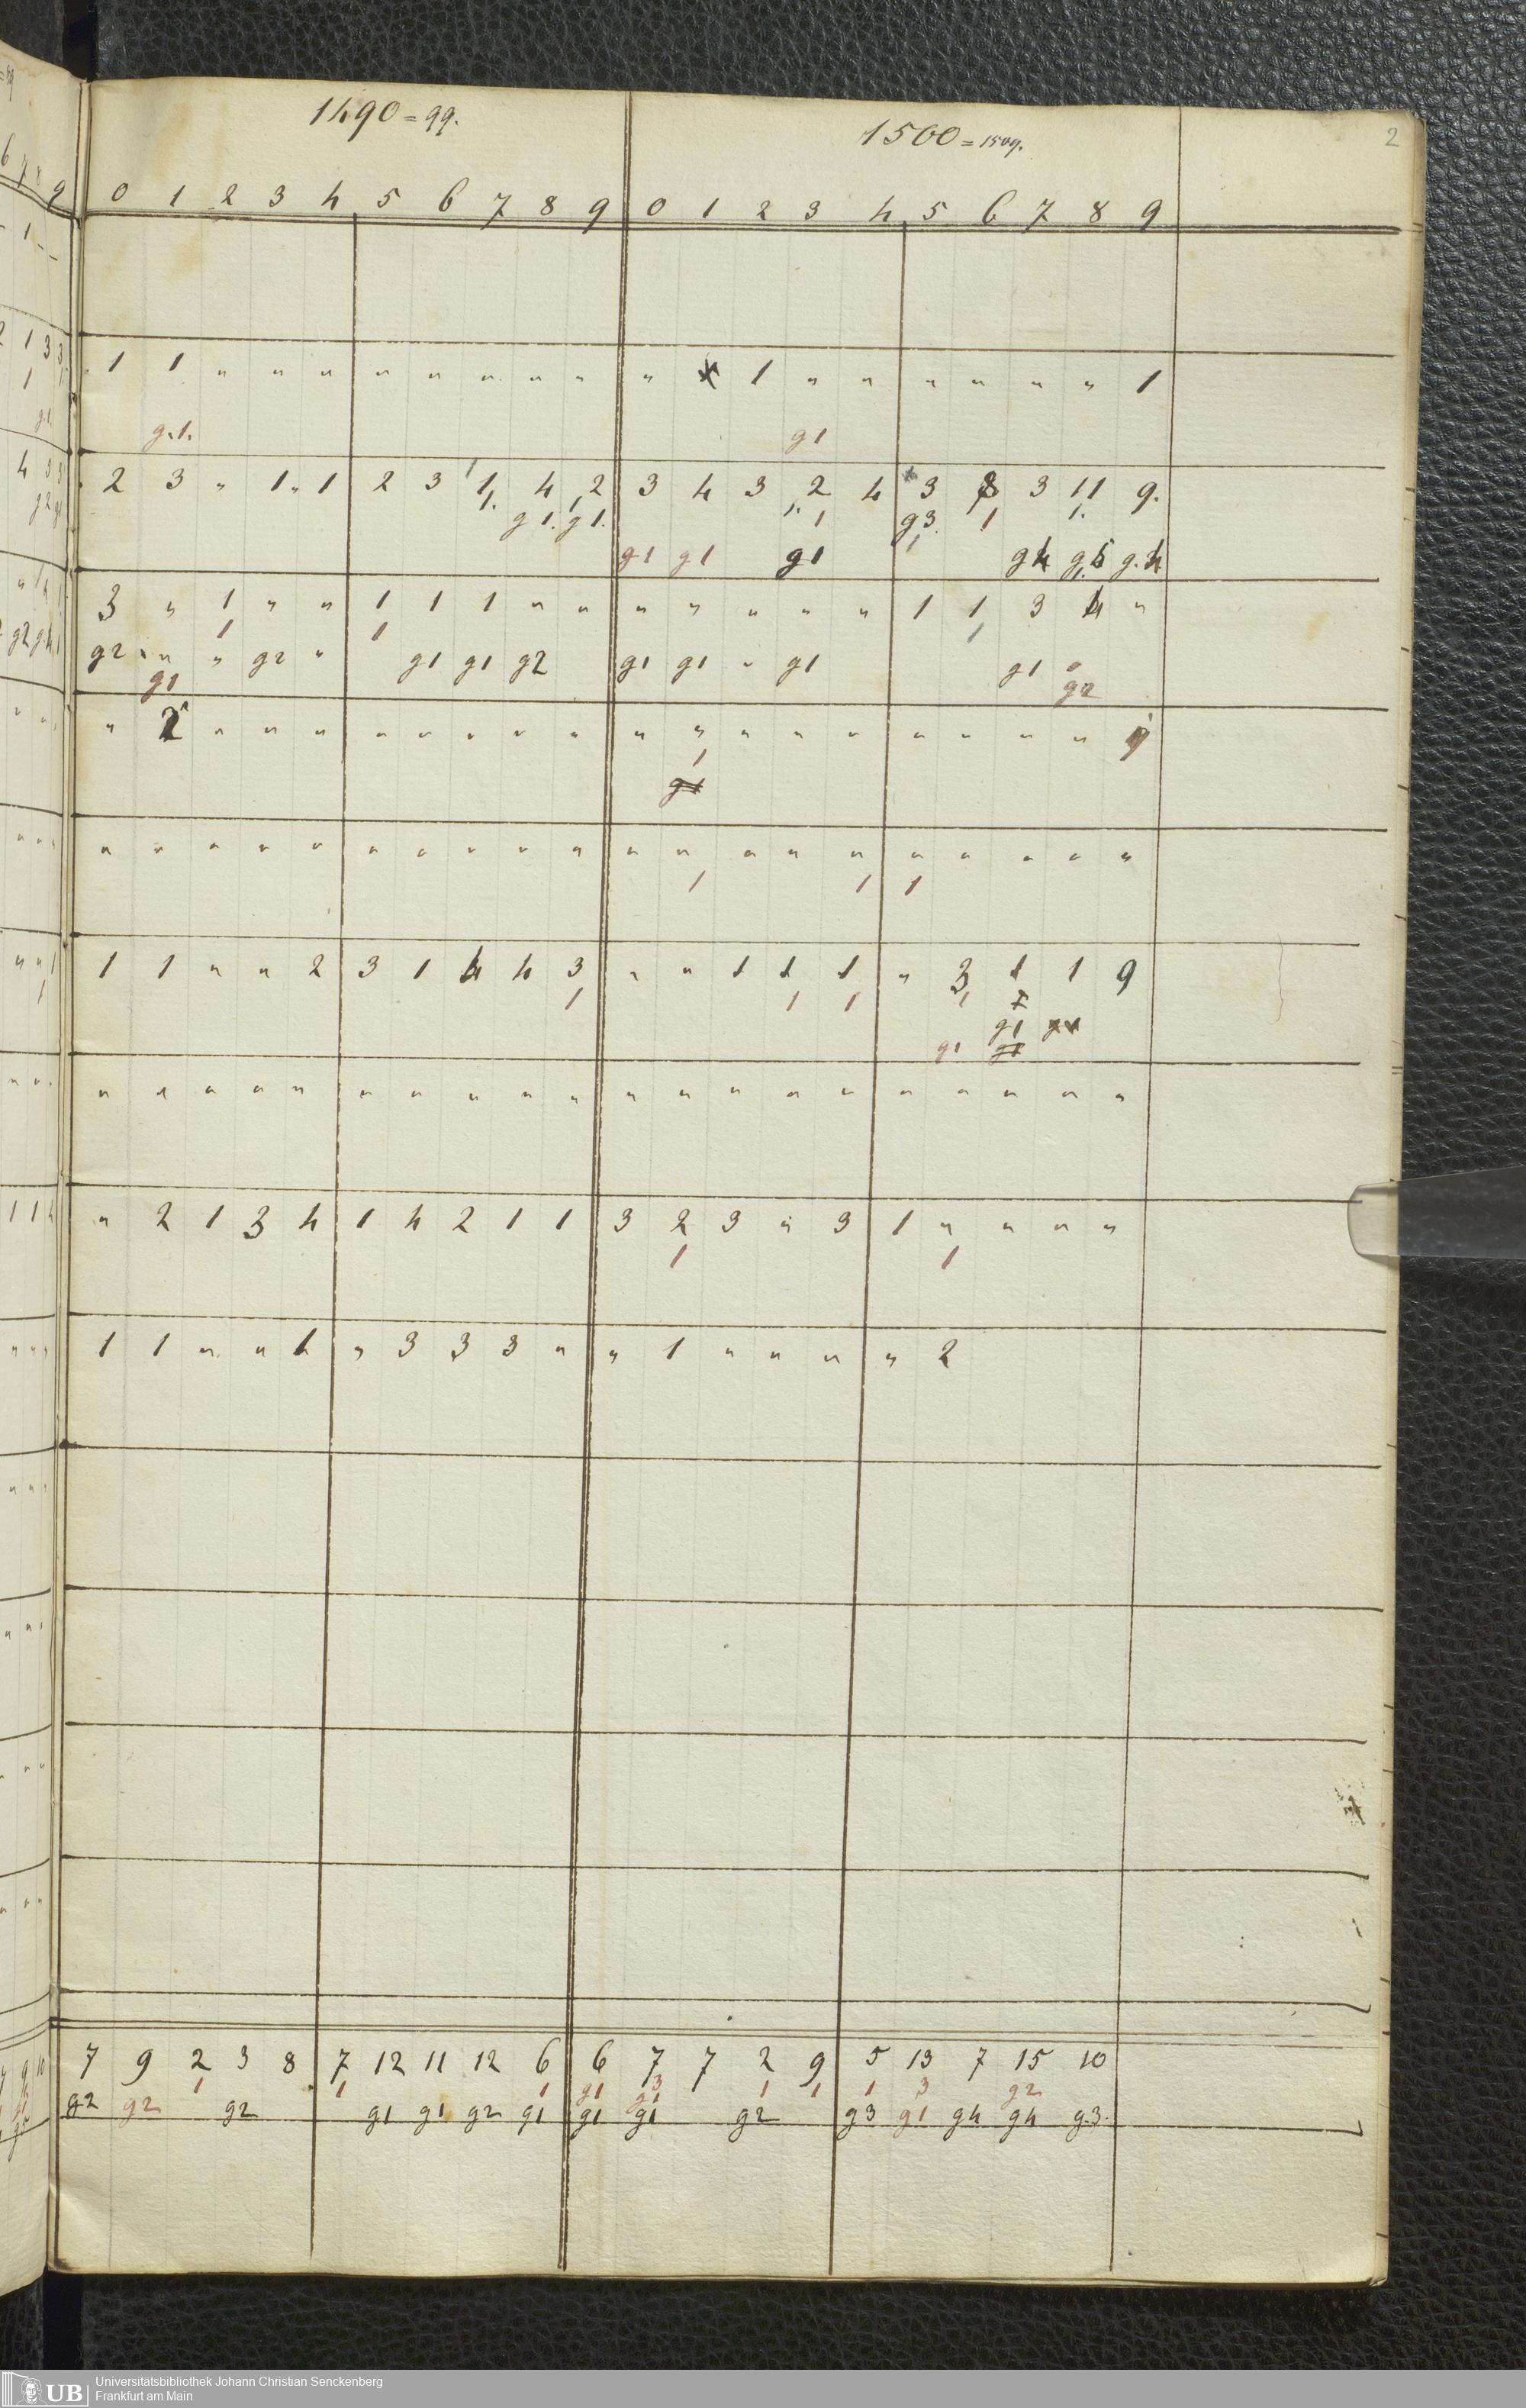 1490=99. 1500=1509. 2
0 1 2 3 4 5 6 7 8 9 0 1 2 3 4 5 6 7 8 9
1 1 " " " " " " " " " 1 " " " " " " 1
g.1. g1
2 3 " 1 " 1 2 3 1. 4 2 3 4 3 2 4 3 8 3 11 9.
1. 1 1. 1 1 1.
g1. g1. g3.
g1 g1 g1 1 g4 g.5 g.4
3 " 1 " " 1 1 1 " " " " " " " 1 1 3 4 "
1 1 1
g2 " " g2 " g1 g1 g2 g1 g1 " g1 g1 "
g1 g2
" 2 " " " " " " " " " " " " " " " " "
1
g1
" " " " " " " " " " " " " " " " " " " "
1 1 1
1 1 " " 2 3 1 4 4 3 " " 1 1 1 " 3 1 1 9
1 1 1 1
g1
g1 g1
" " " " " " " " " " " " " " " " " " " "
" 2 1 3 4 1 4 2 1 1 3 2 3 " 3 1 " " " "
1 1
1 1 " " 1 " 3 3 3 " " 1 " " " " 2
7 9 2 3 8 7 12 11 12 6 6 7 7 2 9 5 13 7 15 10
1 1 1 g1 3 1 1 1 3 g2
g2 g2 g2 g1 g1 g2 g1 g1 g1 g2 g3 g1 g4 g4 g3.
UB
Universitätsbibliothek Johann Christian Senckenberg
Frankfurt am Main